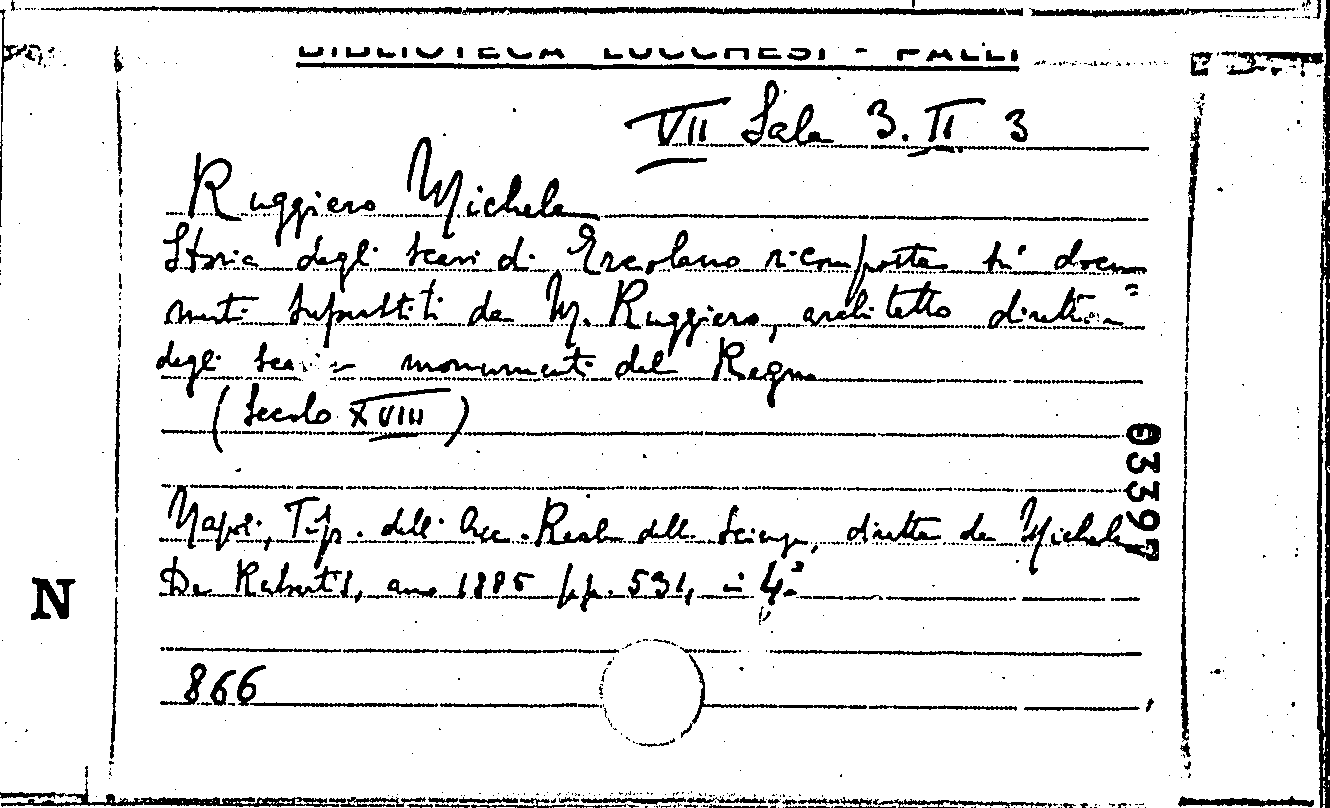 BIBLIOTECA LUCCHESI - PALLI
VII Sala 3. II 3
Ruggiero Michele
Storia degli scavi di Ercolano ricomposta su' docu=
menti superstiti da M. Ruggiero, architetto direttore
degli scavi monumenti del Regno
(Secolo XVIII)
03397
Napoli, Tip. dell' Acc. Reale delle Scienze, diretta da Michele
De Rubertis, anno 1885 pp. 531, in 4º
N
866